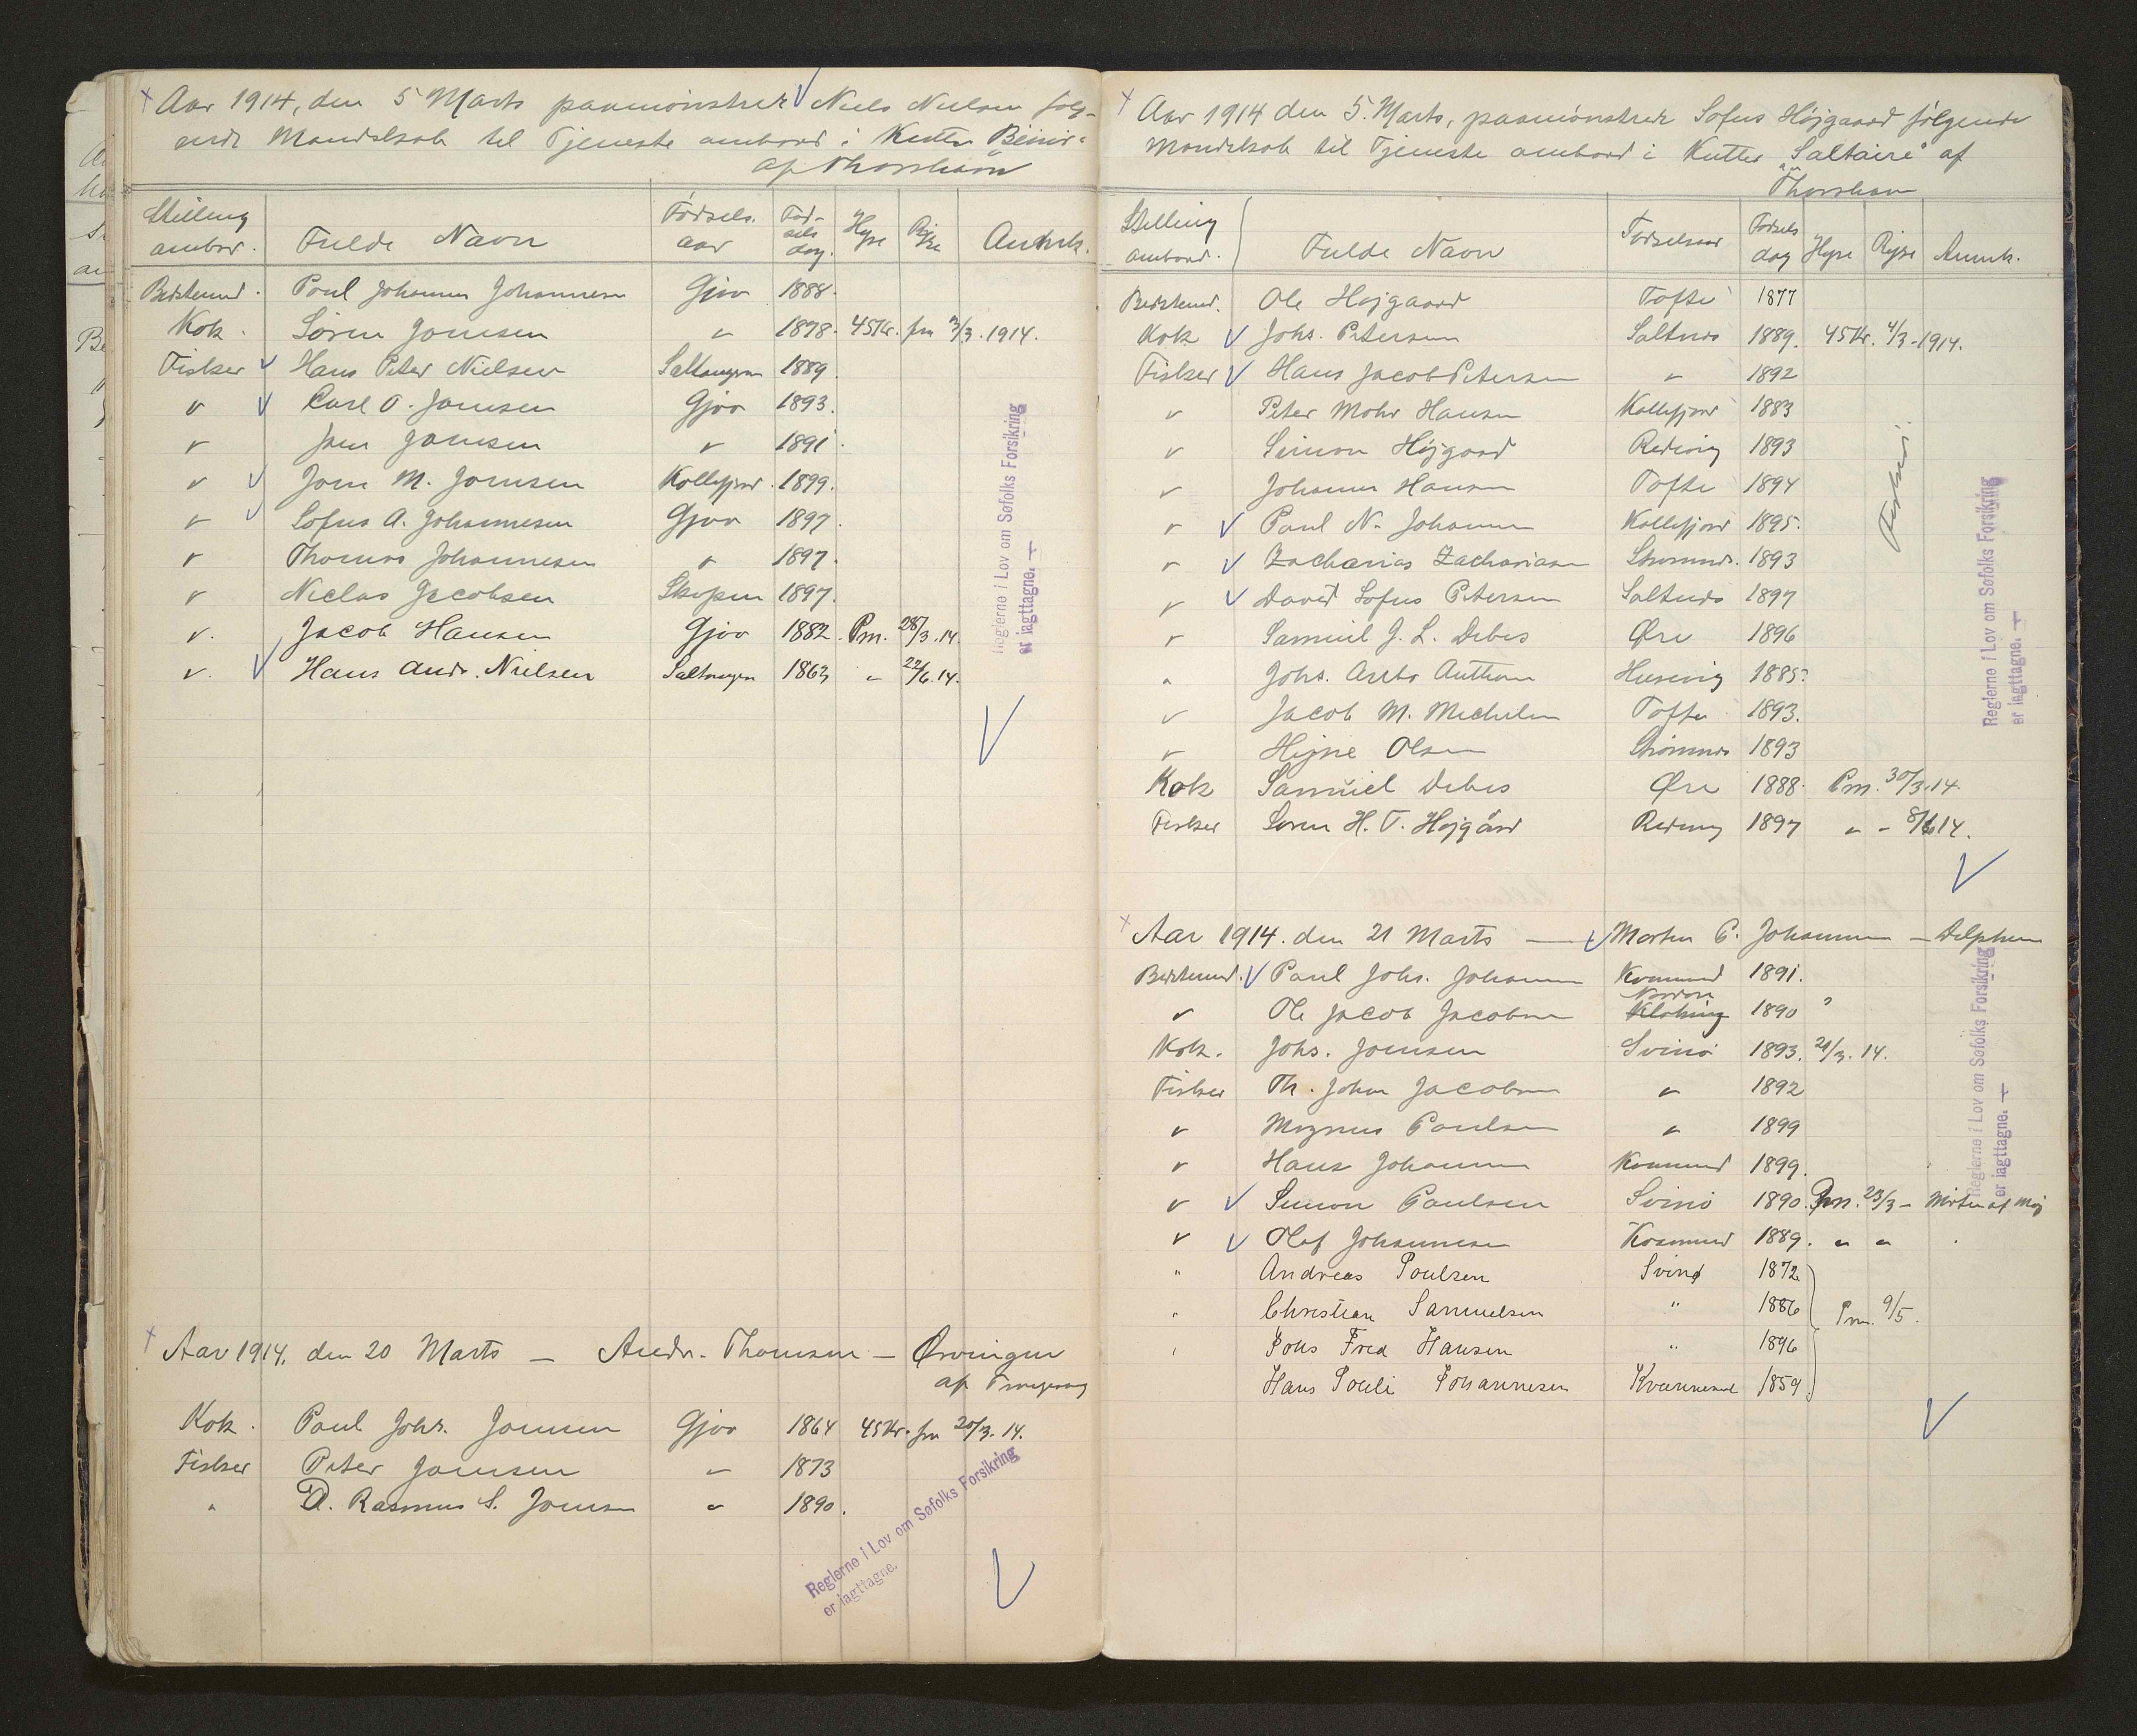 Aar 1914, den 5 Marts paamönstrer Niels Nielsen følg-
ende Mandskab til Tjeneste ombord i Kutter "Beinir"
af Thorshavn
Stilling ombor. Fulde Navn Fødsels. aar Fød- sels dag. Hyre Rejse Anmk.
Bedstemd. Poul Johannes Johannesen Gjov 1888.
Kok. Sören Joensen " 1878. 45 Kr. fra 3/3. 1914.
Fisker Hans Peter Nielsen Saltangen 1889.
" Carl O. Joensen Gjov 1893.
" Jens Joensen " 1891.
" Joen M. Joensen Kollefjord. 1899.
" Sofus A. Johannesen Gjov 1897.
" Thomas Johannesen " 1897.
" Niclas Jacobsen Skopen 1897.
" Jacob Hansen Gjov 1882. Pm. 28/3.14.
" Hans Andr. Nielsen Saltangen 1863 " 22/6.14.
Reglerne i Lov om Søfolks Forsikring
er iagttagne.
Aar 1914, den 20 Marts — Andr. Thomsen — Ørvingur
af
Kok. Poul Johs. Joensen Gjov 1864 45 Kr. fra 20/3. 14.
Fisker Peter Joensen " 1873
" D. Rasmus S. Joensen " 1890.
Reglerne i Lov om Søfolks Forsikring
er iagttagne.
Aar 1914 den 5. Marts, paamönstrer Sofus Höjgaard følgende
Mandskab til Tjeneste ombord i Kutter "Saltaire" af
Thorshavn
Stilling ombord. Fulde Navn Fødselsaar Fødsels dag Hyre Rejse Anmk.
Bedstemd. Ole Højgaard Tofte 1877
Kok Johs. Petersen Saltnes 1889. 45 Kr. 4/3-1914.
Fisker Hans Jacob Petersen " 1892
" Peter Mohr Hansen Kollefjord 1883
" Simon Höjgaard Redevig 1893
" Johannes Hansen Tofte 1894
" Paul N. Johannesen Kollefjord 1895.
" Zacharias Zachariasen Strømnes. 1893
" David Sofus Petersen Saltnes 1897
" Samuel J. L. Debes Øre 1896
" Johs. Anthoniussen Husevig 1885?
" Jacob M. Michelsen Tofte 1893.
" Højne Olsen Strömnes 1893
Kok Samúel Debes Øre 1888. Pm. 30/3.14.
Fisker Sören H. T. Højgård Redevig 1897 " - 8/6 14.
Reglerne i Lov om Søfolks Forsikring
er iagttagne.
Aar 1914. den 21 Marts — Morten P. Johannesen — Delphin
Bedstemd. Paul Johs. Johannesen Kvannesund 1891.
" Ole Jacob Jacobsen Nordøre 1890 "
Kok. Johs. Joensen Svinö 1893. 21/3. 14.
Fisker Th. Johan Jacobsen " 1892
" Magnus Poulsen " 1899
" Hans Johannesen Kvannesund 1899.
" Simon Paulsen Svinö 1890. Pm. 23/3 - Midten af Maj
" Olaf Johannesen Kvannesund 1889. " "
" Andreas Poulsen Svinø 1872
" Christian Samuelsen " 1886 Pm. 9/5.
" Johs Fred Hansen " 1896
Hans Pouli Johannesen Kvannesund 1859
Reglerne i Lov om Søfolks Forsikring
er iagttagne.